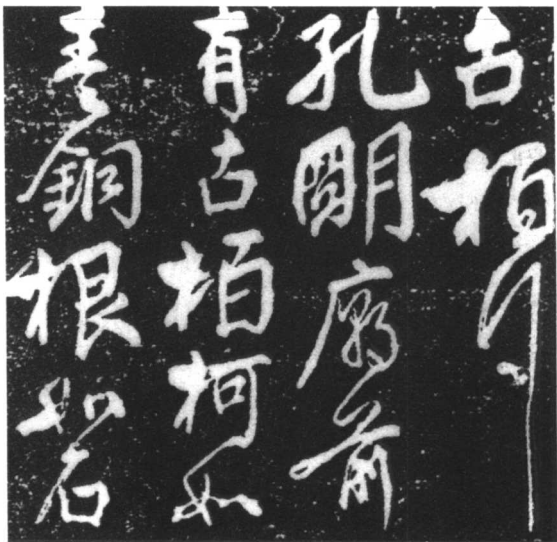 古栢行
孔明廟前
有古栢柯如
青銅根如石